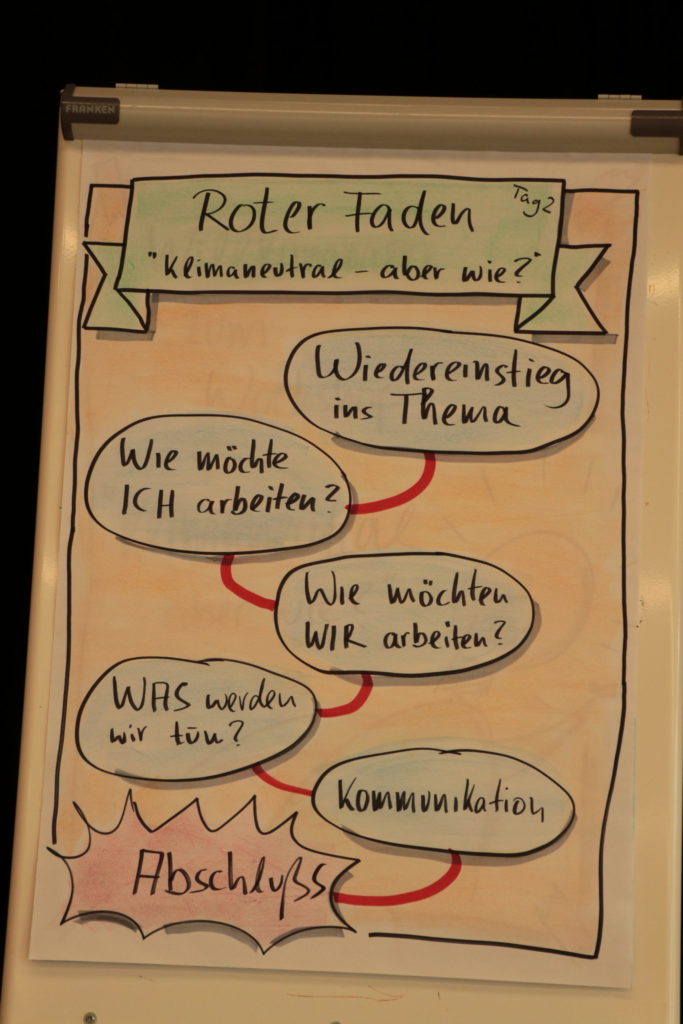 FRANKEN
Roter Faden
Tag 2
"Klimaneutral - aber wie?"
Wiedereinstieg
ins Thema
Wie möchte
ICH arbeiten?
Wie möchten
WIR arbeiten?
WAS werden
wir tun?
Kommunikation
Abschlußs